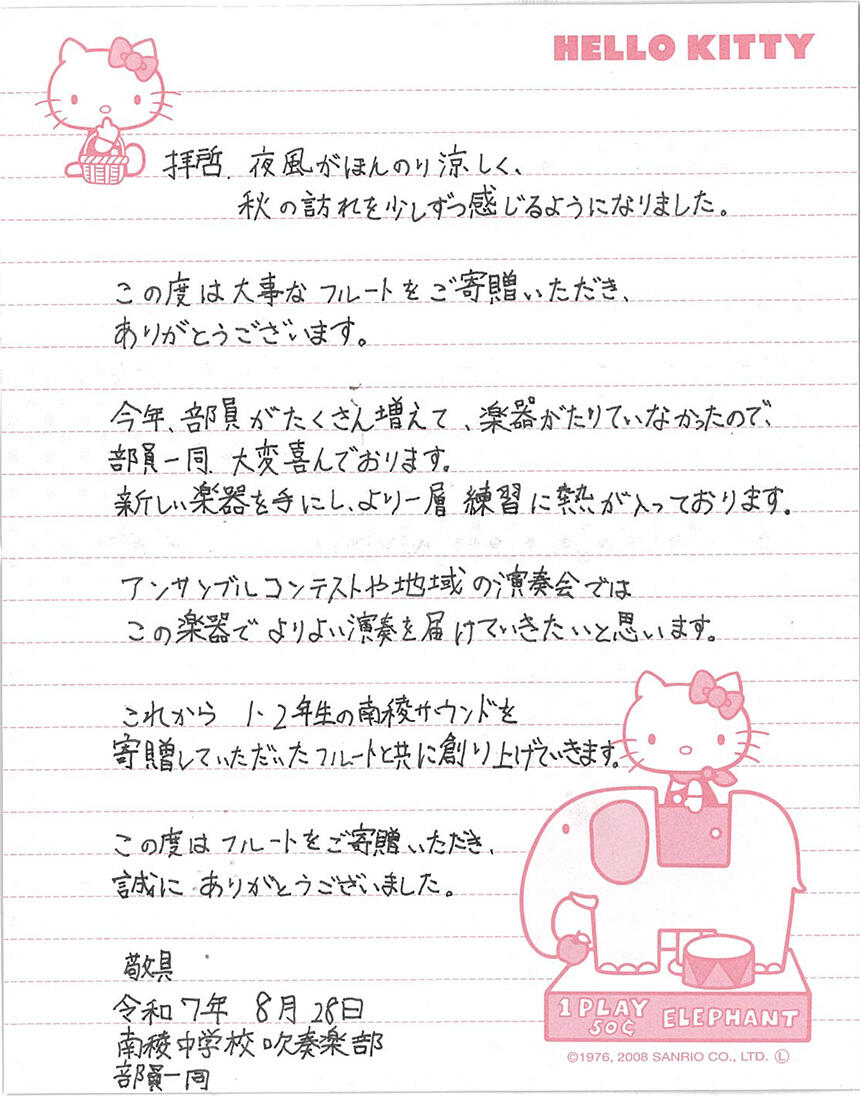 HELLO KITTY
拝啓. 夜風がほんのり涼しく、
秋の訪れを少しずつ感じるようになりました。
この度は大事なフルートをご寄贈いただき、
ありがとうございます。
今年、部員がたくさん増えて、楽器がたりていなかったので、
部員一同、大変喜んでおります。
新しい楽器を手にし、より一層 練習に熱が入っております。
アンサンブルコンテストや地域の演奏会では
この楽器で よりよい演奏を届けていきたいと思います。
これから 1・2年生の南稜サウンドを
寄贈していただいたフルートと共に創り上げていきます。
この度はフルートをご寄贈いただき、
誠に ありがとうございました。
敬具
令和7年 8月28日
南稜中学校吹奏楽部
部員一同
1 PLAY 50¢ ELEPHANT
©1976, 2008 SANRIO CO., LTD. Ⓛ